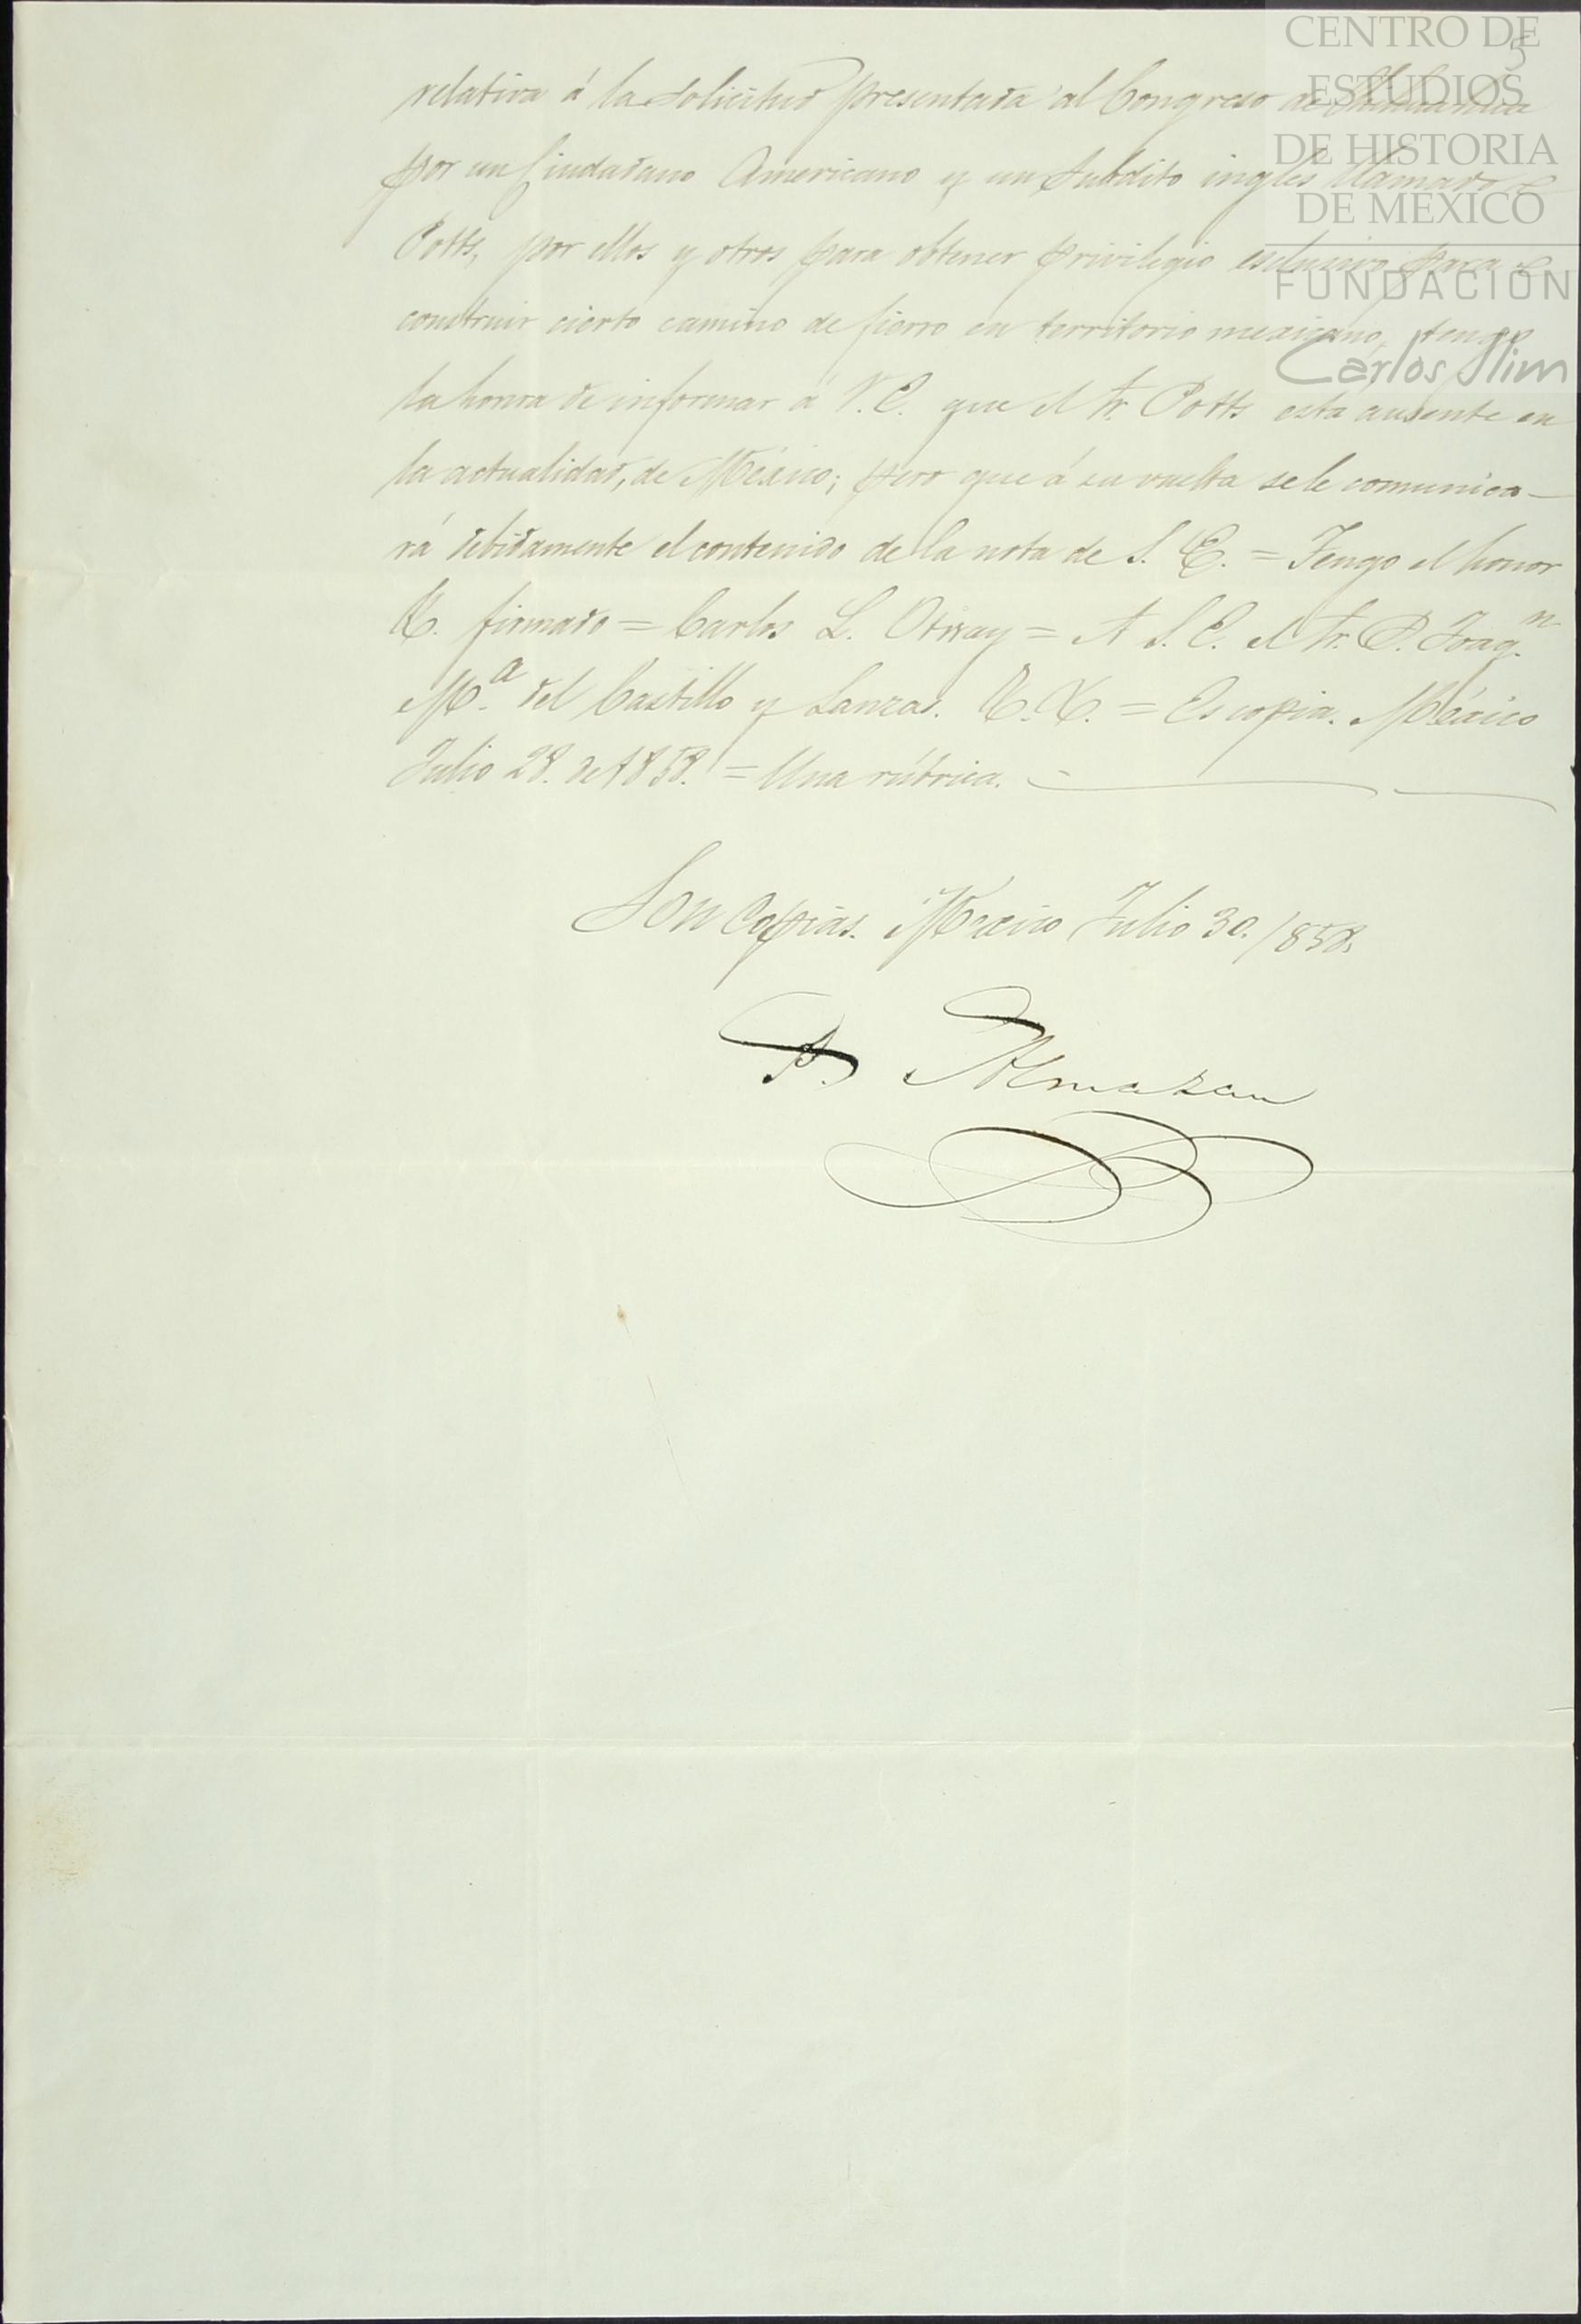 CENTRO DE
ESTUDIOS
DE HISTORIA
DE MÉXICO
FUNDACIÓN
Carlos Slim
5
relativa á la solicitud presentada al Congreso de Chihuahua
por un Ciudadano Americano y un subdito ingles llamado
Potts, por ellos y otros para obtener privilegio esclusivo para
construir cierto camino de fierro en territorio mexicano, tengo
la honra de informar á V.E. que el Sr. Potts está ausente en
la actualidad, de México; pero que á su vuelta se le comunica-
rá debidamente el contenido de la nota de S. E. = Tengo el honor
&. firmado = Carlos L. Otway = A S. E. el Sr. D. Joaq.n
M.a del Castillo y Lanzas. &. &. = Es copia. México
Julio 28. de 1858. = Una rúbrica.
Son Copias. Mexico Julio 30. /858.
Almazan